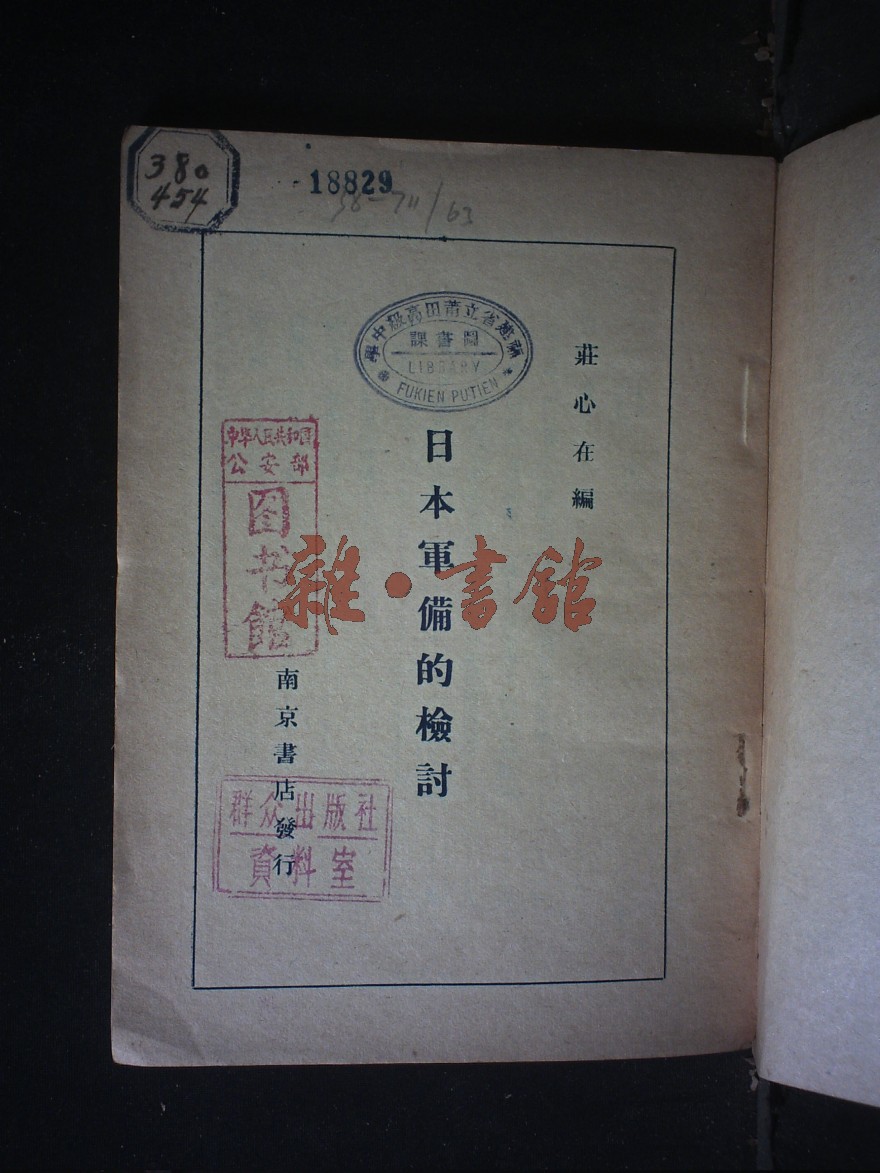 380
454
18829
福建省立莆田高級中學
圖書課
LIBRARY
FUKIEN PUTIEN
莊心在編
日本軍備的檢討
南京書店發行
中华人民共和国
公安部
图书馆
雜·書館
群众出版社
資料室